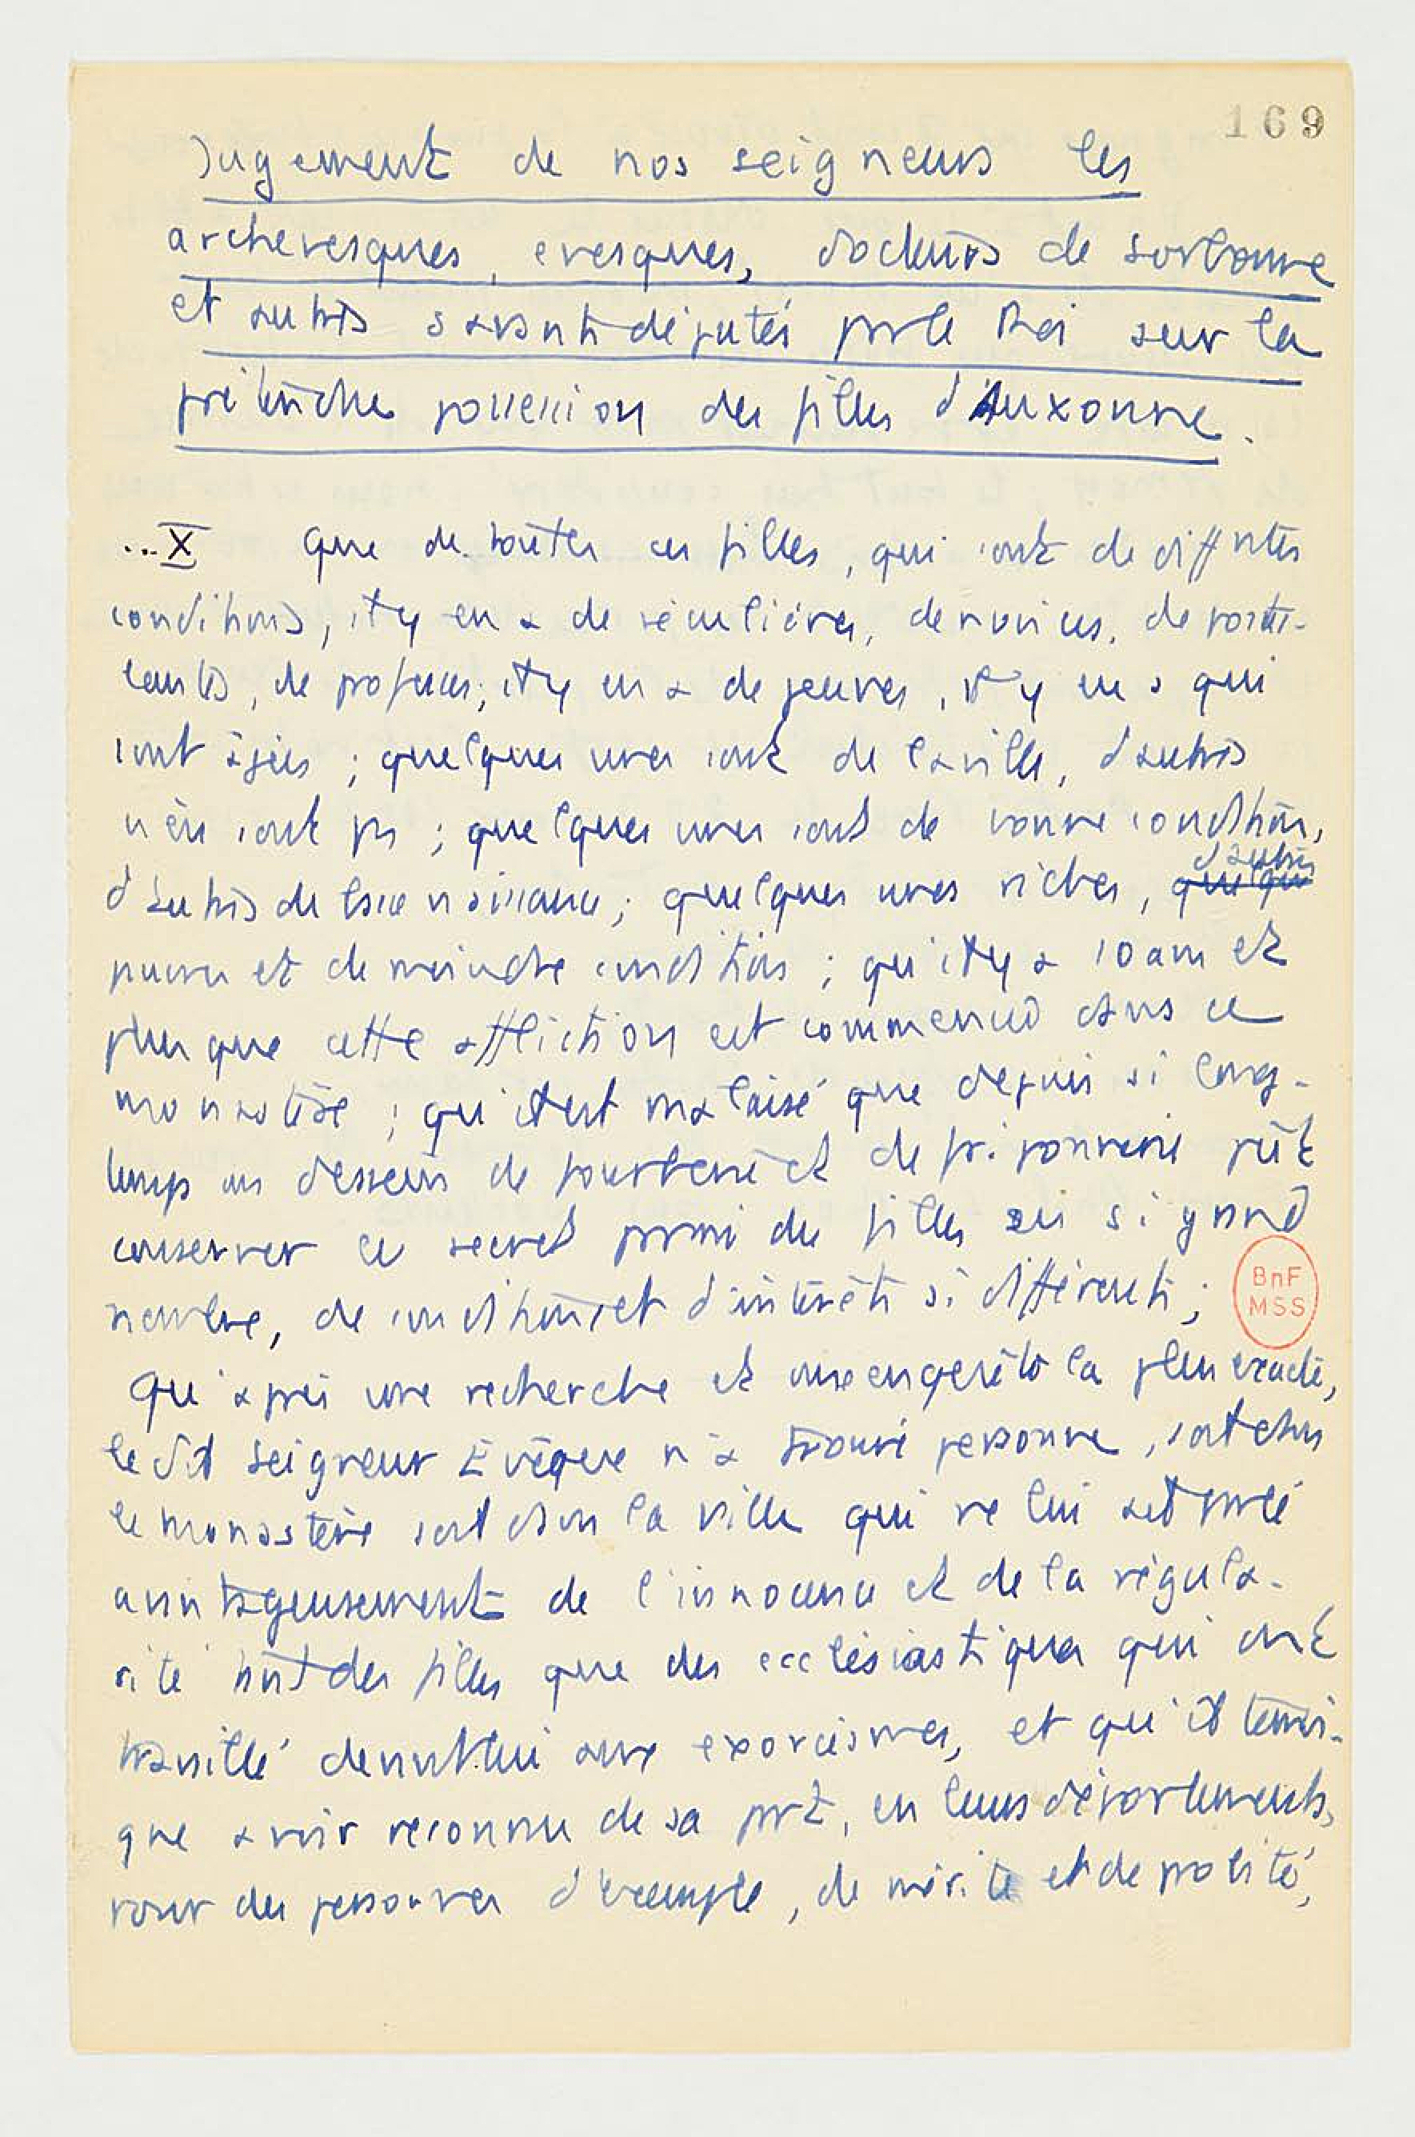 169
Jugement de nos seigneurs les
archevesques, evesques, docteurs de Sorbonne
et autres savants députés par le Roi sur la
prétendue possession des filles d'Auxonne.
...X Que de toutes ces filles, qui sont de diffntes
conditions, il y en a de séculières, de novices, de postu-
lantes, de professes; il y en a de jeunes, il y en a qui
sont âgées ; quelques unes sont de la ville, d'autres
n'en sont pas ; quelques unes sont de bonne condition,
d'autres
d'autres de basse naissance ; quelques unes riches, quelques
pauvres et de moindre condition ; qu'il y a 10 ans et
plus que cette affliction est commencée dans ce
monastère ; qu'il est malaisé que depuis si long-
temps un dessein de fourberie et de friponnerie pût
conserver le secret parmi des filles en si grand
nombre, de conditions et d'intérêts si différents ;
BnF
MSS
Qu'après une recherche et une enquête la plus exacte,
le dit Seigneur Evêque n'a trouvé personne, soit dans
le monastère soit dans la ville qui ne lui ait parlé
avantageusement de l'innocence et de la régula-
rité tant des filles que des ecclésiastiques qui ont
travaillé devant lui aux exorcismes, et qu'il témoi-
gne avoir reconnu de sa part, en leurs déportements,
pour des personnes d'exemple, de mérite et de probité,